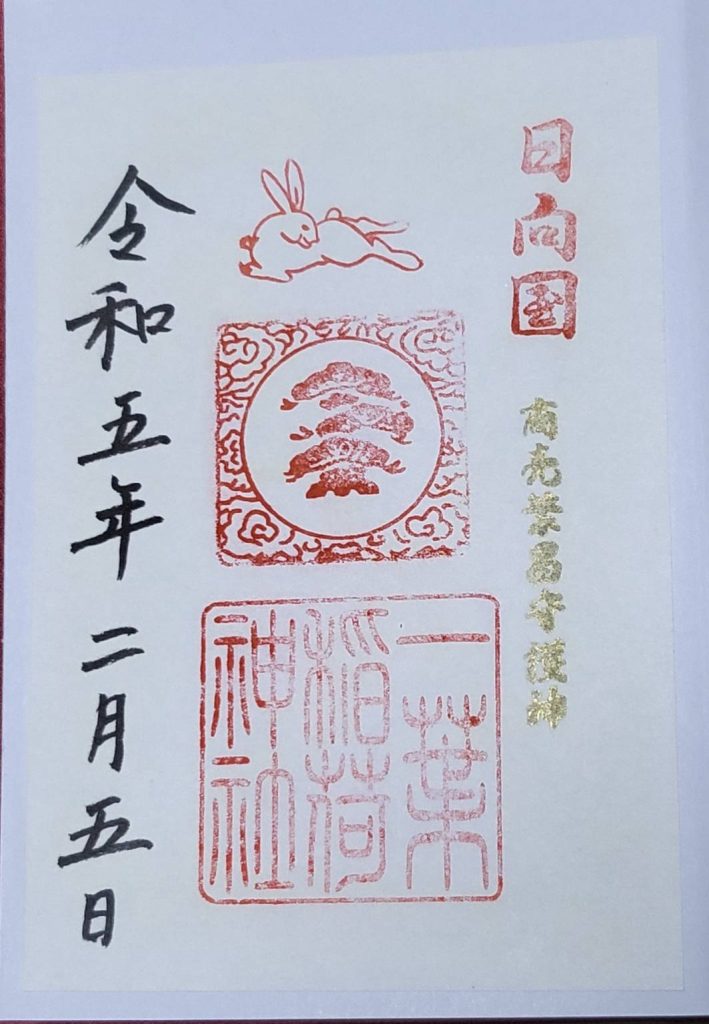 日向国
商売繁昌守護神
一葉
稲荷
神社
令和五年二月五日